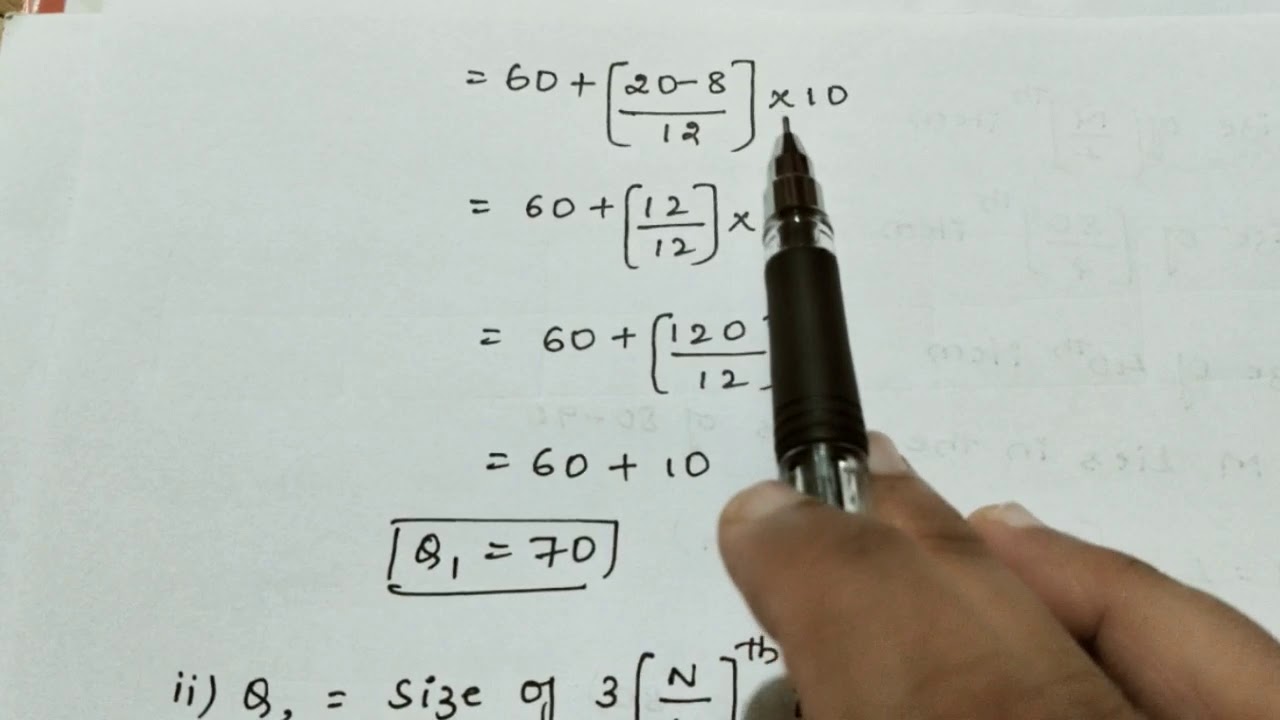 = 60 + [20-8/12] × 10
= 60 + [12/12] ×
= 60 + [120/12
= 60 + 10
Q₁ = 70
ii) Q, = Size of 3 [N/ ]th